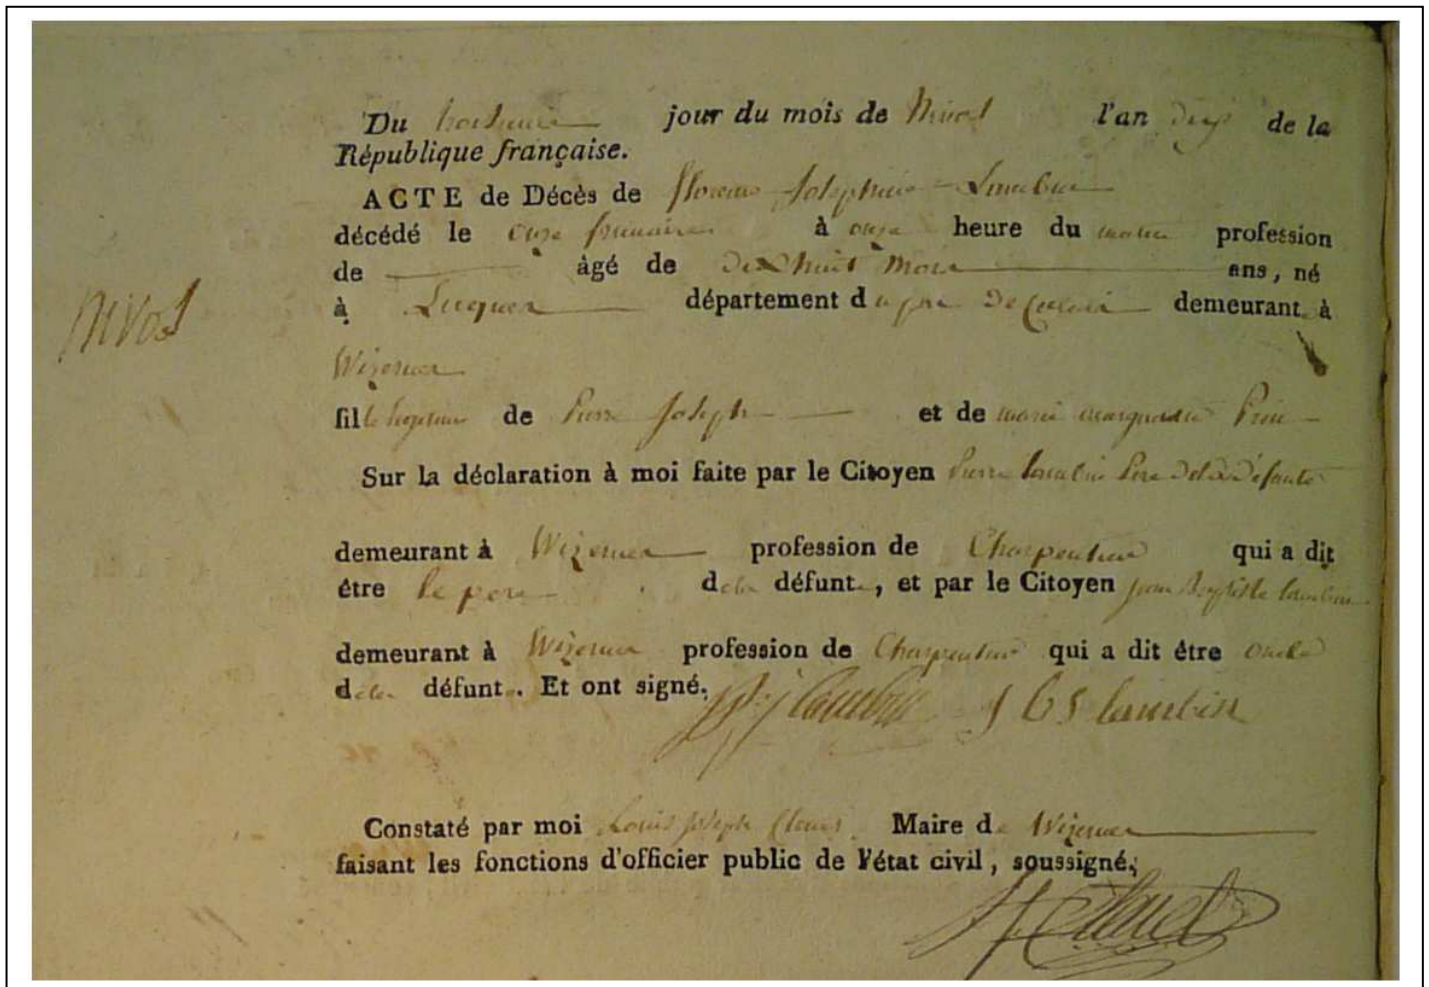 Du jour du mois de Nivos l'an dix de la
République française.
ACTE de Décès de Josephine Lambin
décédé le onze frimaire à onze heure du matin profession
de âgé de Dix huit mois ans, né
Nivos
à Lucquer département du pas De Calais demeurant à
Wizernes
fille de Pierre Joseph et de marie marguerite
Sur la déclaration à moi faite par le Citoyen Pierre Lambin Pere de la défunte
demeurant à Wizernes profession de Charpentier qui a dit
être le pere de la défunte, et par le Citoyen jean Baptiste lambin
demeurant à Wizernes profession de Charpentier qui a dit être oncle
de la défunte. Et ont signé.
lambin J b s lambin
Constaté par moi Louis joseph Maire de Wizernes
faisant les fonctions d'officier public de l'état civil, soussigné,